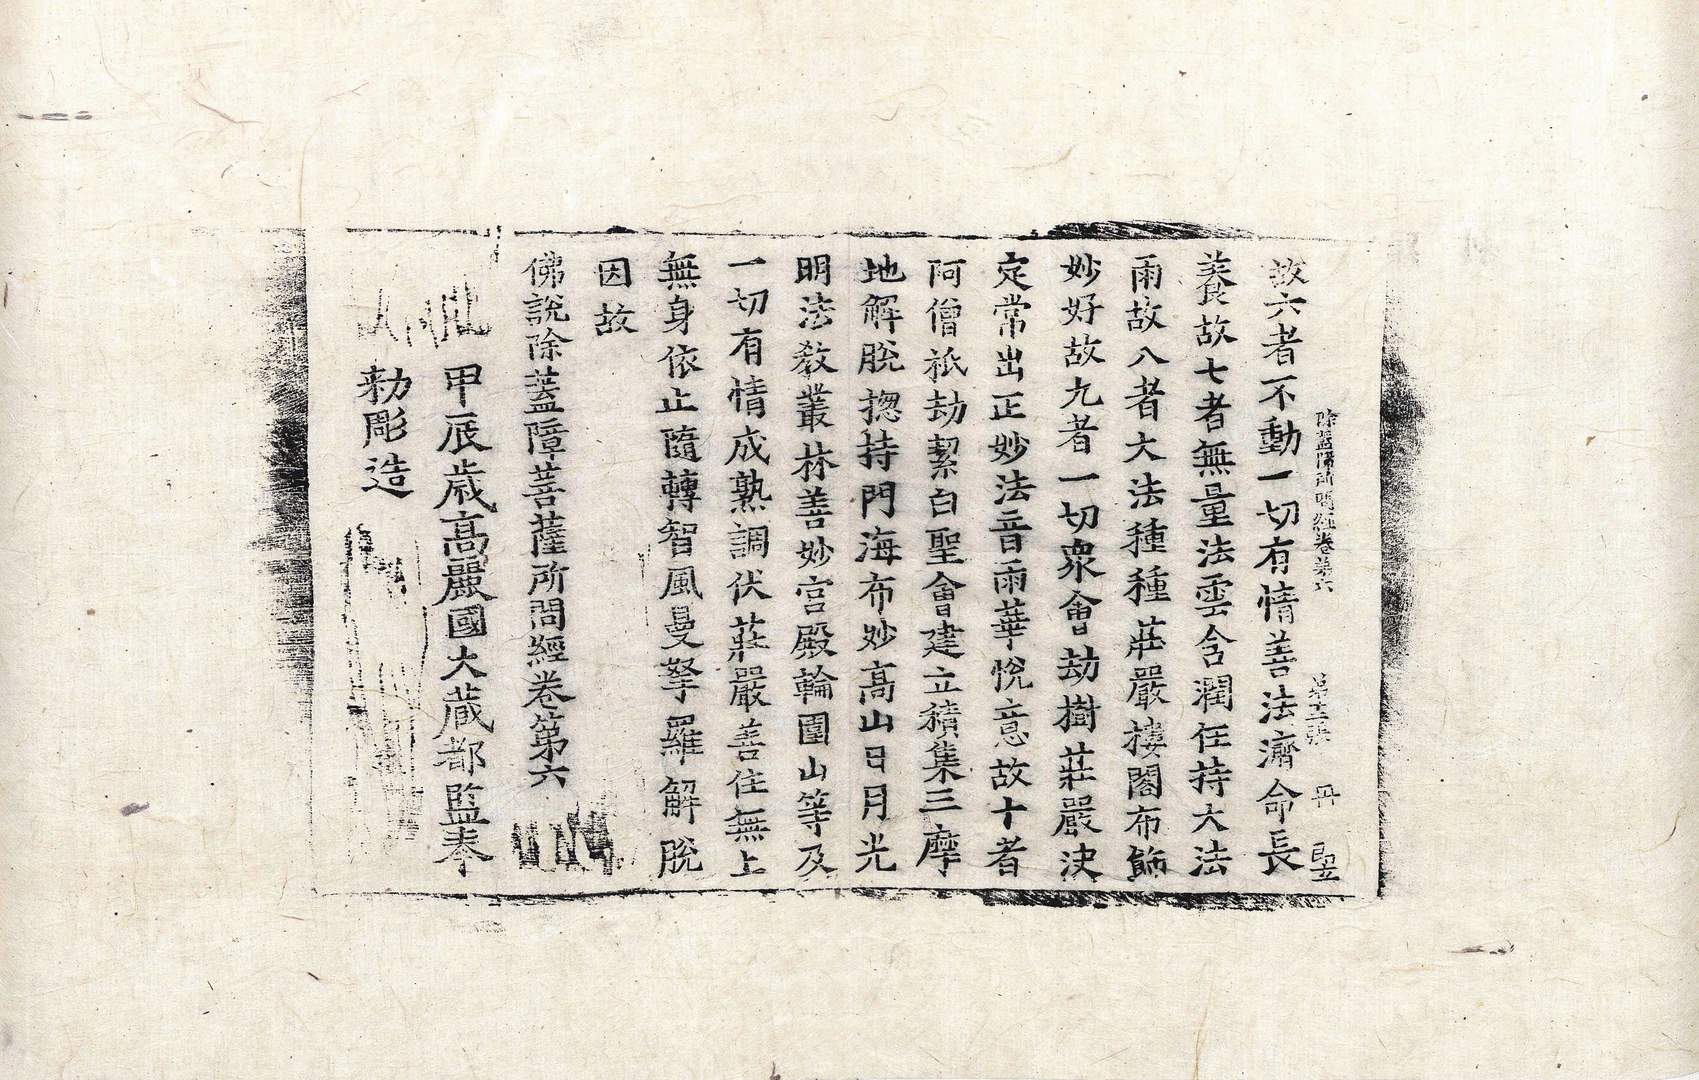 除蓋障所問經卷第六　第二十張　毋　竪
故六者不動一切有情善法濟命長
養故七者無量法雲含潤任持大法
雨故八者大法種種莊嚴樓閣布飾
妙好故九者一切衆會劫樹莊嚴決
定常出正妙法音雨華悅意故十者
阿僧祇劫絜白聖會建立積集三摩
地解脫揔持門海布妙高山日月光
明法教叢林善妙宮殿輪圍山等及
一切有情成熟調伏莊嚴善住無上
無身依止隨轉智風曼拏羅解脫
因故
佛說除蓋障菩薩所問經卷第六
甲辰歲高麗國大藏都監奉
勑彫造